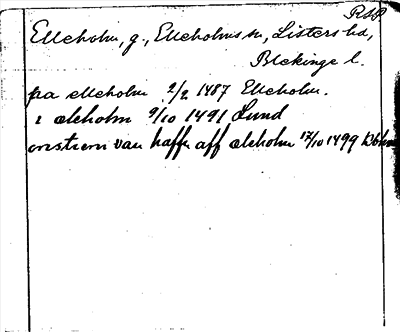 RAP
Elleholm, g., Elleholms sn, Listers hd,
Blekinge l.
paa elleholm 2/2 1487 Elleholm.
i æleholm 9/10 1491 Lund
cristiern van haffn aff æleholm 17/10 1499